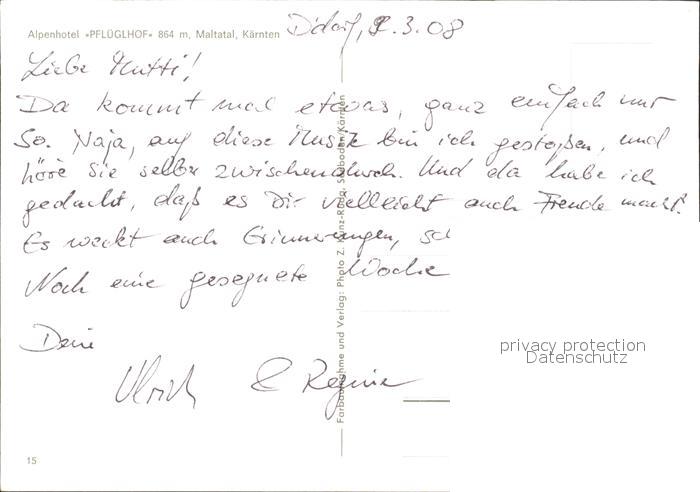 Alpenhotel «PFLÜGLHOF» 864 m, Maltatal, Kärnten
D'dorf, 2.3.08
Liebe Mutti!
Da kommt mal etwas, ganz einfach nur
so. Naja, auf diese Musik bin ich gestoßen, und
höre sie selber zwischendurch. Und da habe ich
gedacht, daß es Dir vielleicht auch Freude macht.
Es weckt auch Erinnerungen,
Noch eine gesegnete Woche
Deine
Ulrich & Regine
Farbaufnahme und Verlag: Photo Z. Kunz-Rüdig, Seeboden/Kärnten
privacy protection
Datenschutz
15